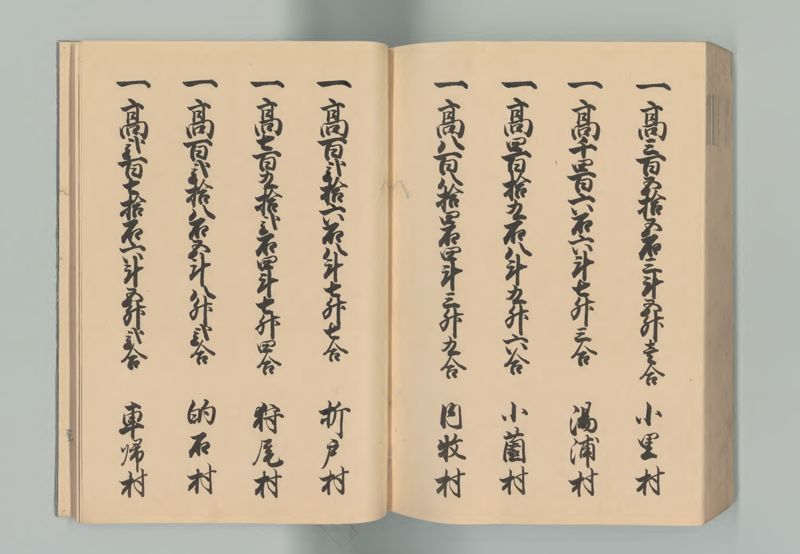 一高三百五拾五石三斗五升壱合　小里村
一高千四百六石六斗七升三合　湯浦村
一高四百拾九石八斗九升六合　小薗村
一高八百八拾四石四斗三升九合　内牧村
一高百弐拾六石八斗七升七合　折戸村
一高七百九拾弐石四斗七升四合　狩尾村
一高百弐拾八石五斗八升弐合　的石村
一高弐百七拾石六斗五升弐合　車帰村